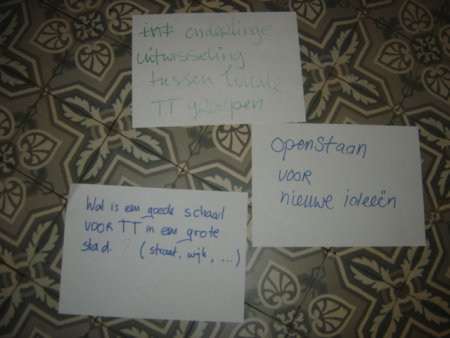 int onderlinge
uitwisseling
tussen lokale
TT groepen
openstaan
voor
nieuwe ideeën
Wat is een goede schaal
voor TT in een grote
stad ? (straat, wijk, ...)